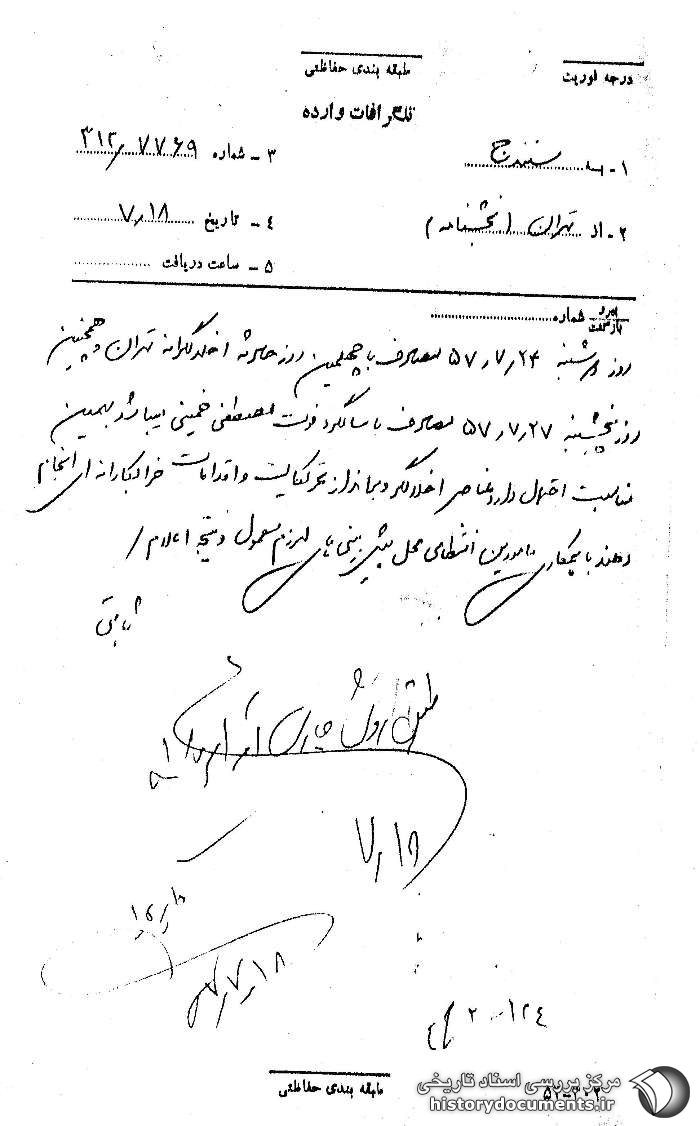 طبقه بندی حفاظتی
درجه فوریت
تلگرافات وارده
۱ - به سنندج
۳ - شماره ۳۱۲/۷۷۶۹
۲ - از تهران (بخشنامه)
۴ - تاریخ ۷/۱۸
۵ - ساعت دریافت
پیرو
بازگشت شماره
روز دوشنبه ۵۷/۷/۲۴ مصادف با چهلمین روز حادثه اخلالگرانه تهران و همچنین
روز پنجشنبه ۵۷/۷/۲۷ مصادف با سالگرد فوت مصطفی خمینی میباشد بهمین
مناسبت احتمال دارد عناصر اخلالگر و برانداز تحریکات و اقدامات خرابکارانه ای انجام
دهند با همکاری مامورین انتظامی محل پیش بینی های لازم معمول و نتیجه اعلام /
ثابتی
طبق روش جاری
۷/۱۸
۵۷/۷/۱۸
طبقه بندی حفاظتی
۵۲-۳۰۲
مرکز بررسی اسناد تاریخی
historydocuments.ir